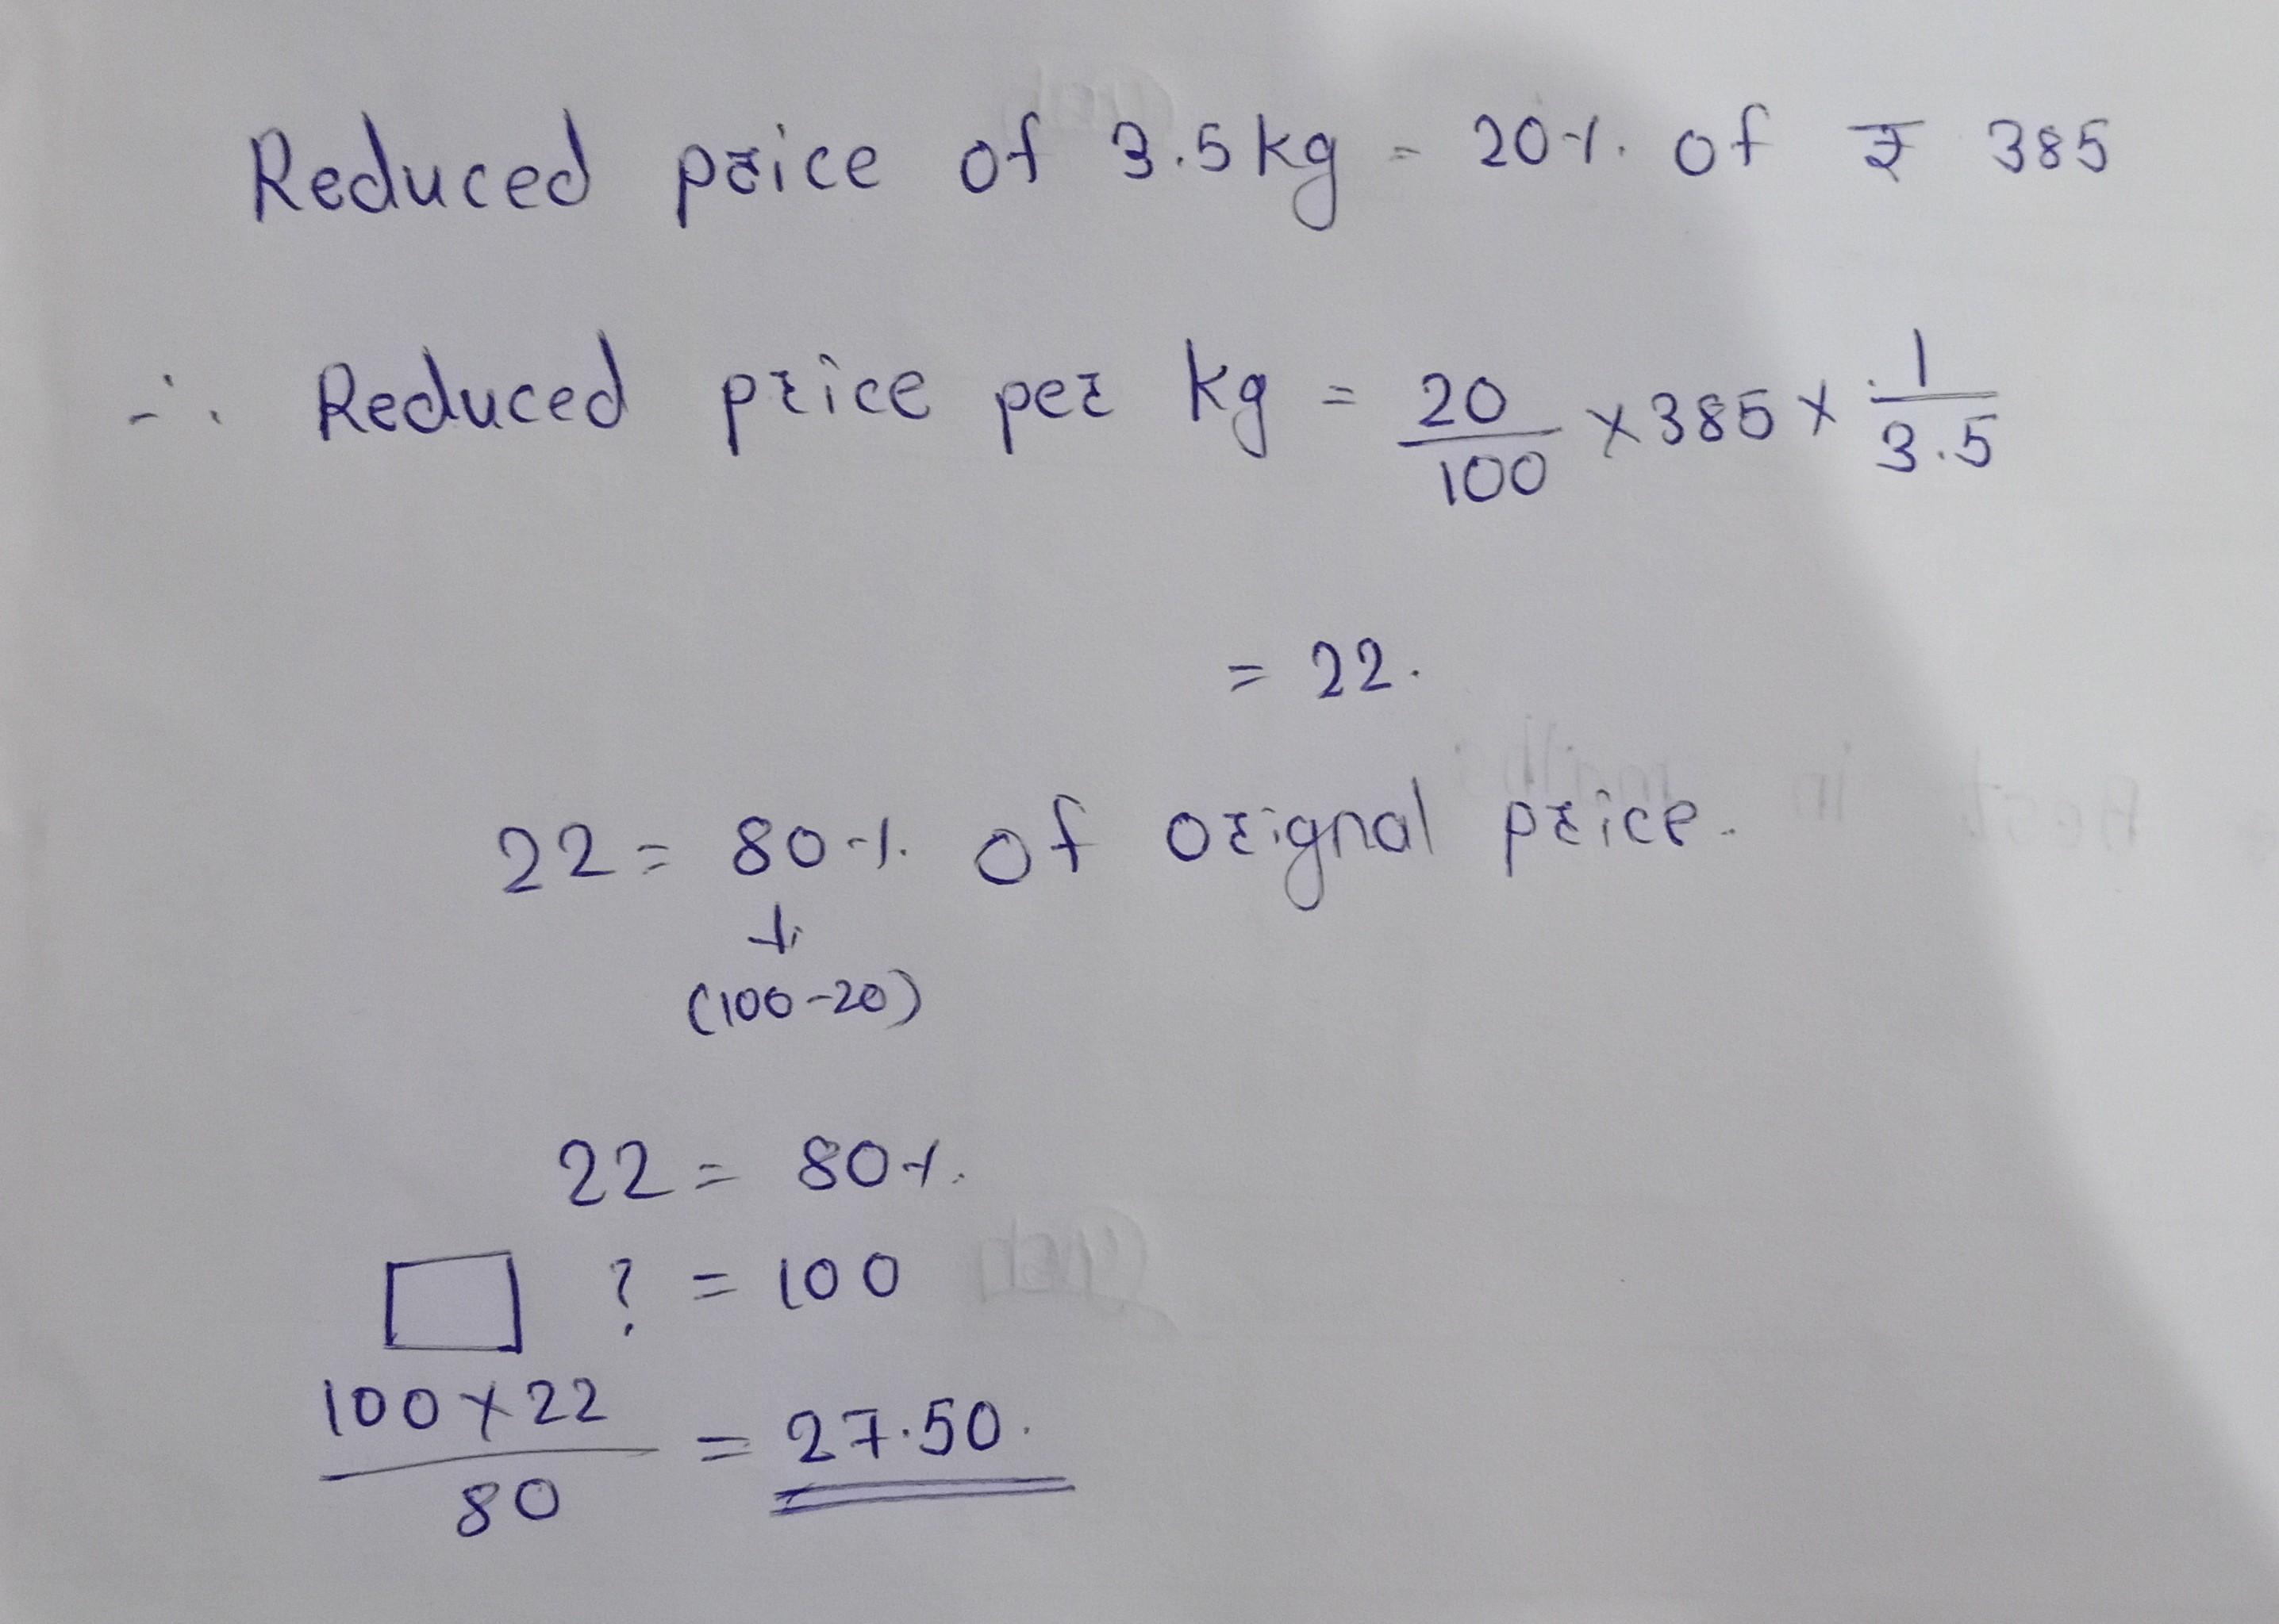 Reduced price of 3.5kg = 20% of ₹ 385
∴ Reduced price per kg = 20/100 × 385 × 1/3.5
= 22.
22 = 80% of orignal price.
(100-20)
22 = 80%.
? = 100
100×22/80 = 27.50.